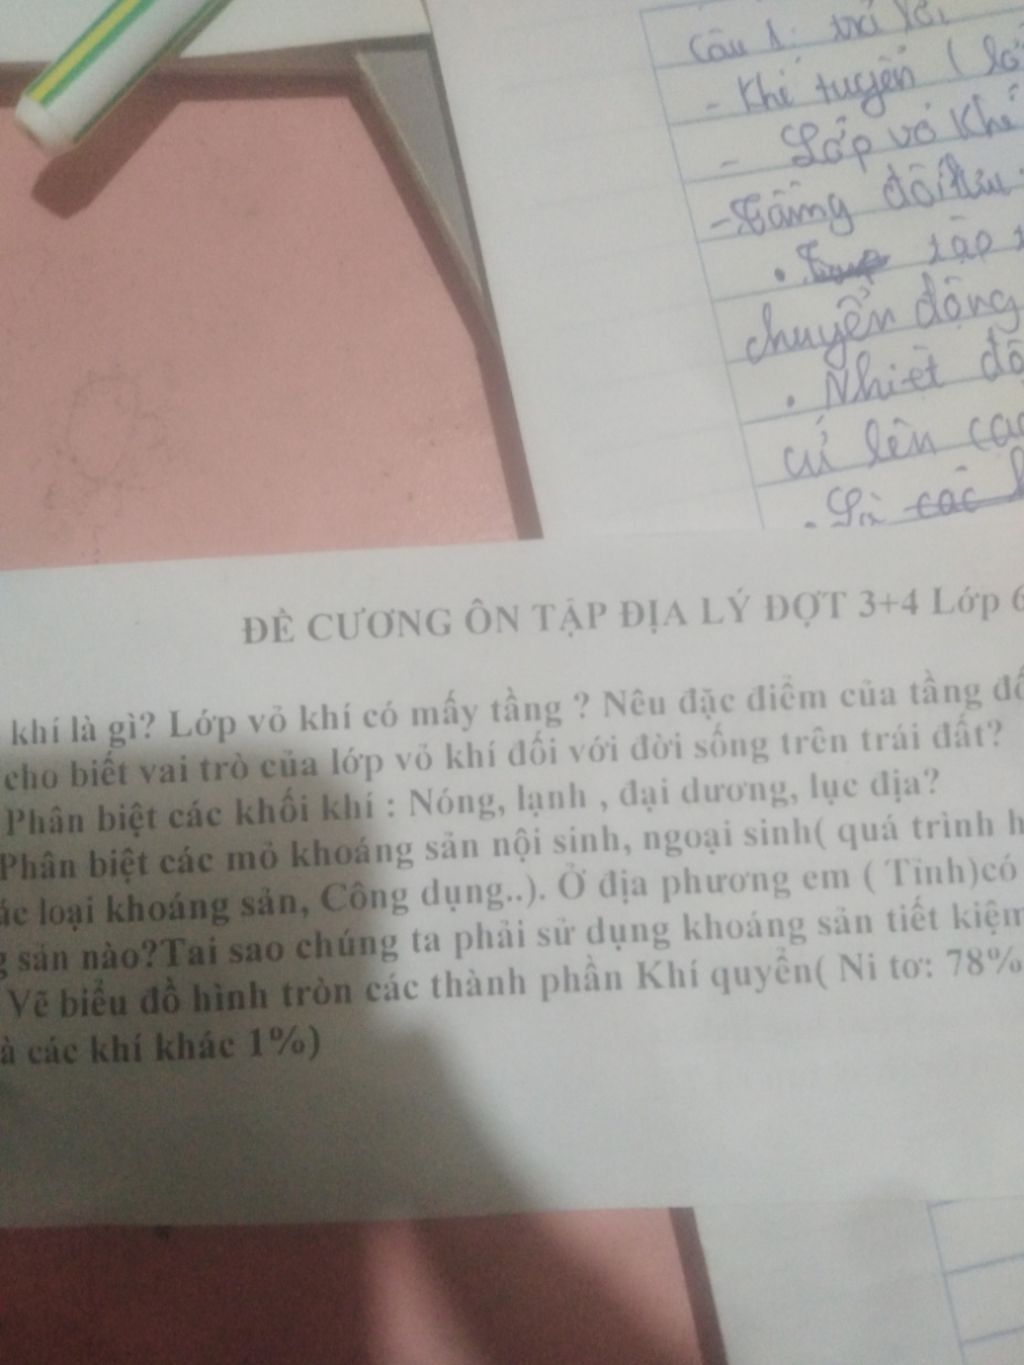 Câu 1: trả lời
- Khí tuyển (
- Lớp vỏ khí
- Tầng đối lưu
tập
chuyển động
. Nhiệt độ
cứ lên cao
. Là các
ĐỀ CƯƠNG ÔN TẬP ĐỊA LÝ ĐỢT 3+4 Lớp 6
khí là gì? Lớp vỏ khí có mấy tầng ? Nêu đặc điểm của tầng đố
cho biết vai trò của lớp vỏ khí đối với đời sống trên trái đất?
Phân biệt các khối khí : Nóng, lạnh , đại dương, lục địa?
Phân biệt các mỏ khoáng sản nội sinh, ngoại sinh( quá trình h
ác loại khoáng sản, Công dụng..). Ở địa phương em ( Tỉnh)có
g sản nào?Tai sao chúng ta phải sử dụng khoáng sản tiết kiệm
Vẽ biểu đồ hình tròn các thành phần Khí quyển( Ni tơ: 78%
à các khí khác 1%)